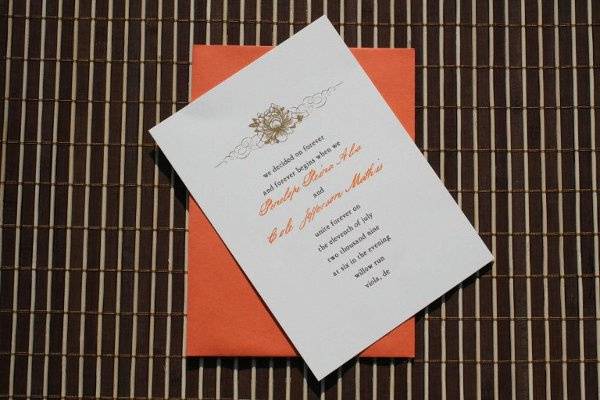 we decided on forever
and forever begins when we
Penelope Maria Alia
and
Cole Jefferson Mathis
unite forever on
the eleventh of july
two thousand nine
at six in the evening
willow run
viola, de